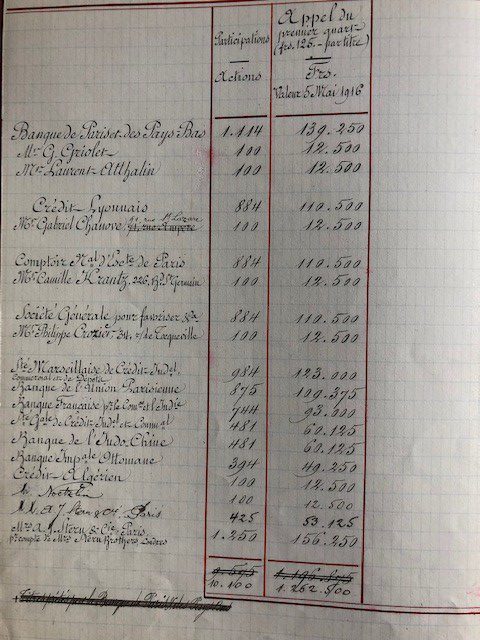 Participations
Actions
Appel du
premier quart
(frs. 125.- par titre)
Frs.
Valeur 5 Mai 1916
Banque de Paris et des Pays-Bas 1.114 139.250
Mr. G. Griolet 100 12.500
Mr. Laurent-Atthalin 100 12.500
Crédit Lyonnais 884 110.500
Mr. Gabriel Chanove 100 12.500
Comptoir Nal. d'Escte. de Paris 884 110.500
Mr. Camille Krantz, 226, Bd. St. Germain 100 12.500
Société Générale pour favoriser &a 884 110.500
Mr. Philippe Crozier 34, r. de Tocqueville 100 12.500
Sté Marseillaise de Crédit Indal. 984 123.000
commercial et de Dépôts
Banque de l'Union Parisienne 875 109.375
Banque Française pr. le Comce. et l'Indie 744 93.000
Sté Gale de Crédit Indel. et Commal 481 60.125
Banque de l'Indo-Chine 481 60.125
Banque Impale Ottomane 394 49.250
Crédit Algérien 100 12.500
100 12.500
Paris 425 53.125
Mrs. A. J. Stern & Cie. Paris 1.250 156.250
pr. compte de Mrs. Stern Brothers, Londres
9.575 1.196.875
10.100 1.262.500